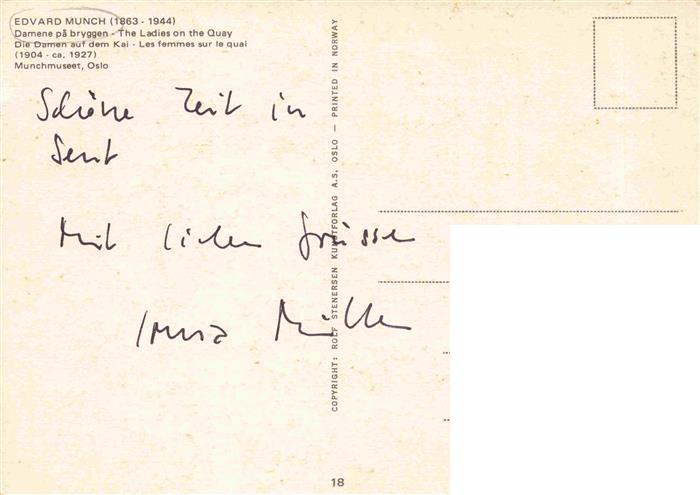 EDVARD MUNCH (1863 - 1944)
Damene på bryggen - The Ladies on the Quay
Die Damen auf dem Kai - Les femmes sur le quai
(1904 - ca. 1927)
Munchmuseet, Oslo
Schöne Zeit in
Sent
Mit lieben Grüssen
Müller
COPYRIGHT: ROLF STENERSEN KUNSTFORLAG A.S. OSLO — PRINTED IN NORWAY
18